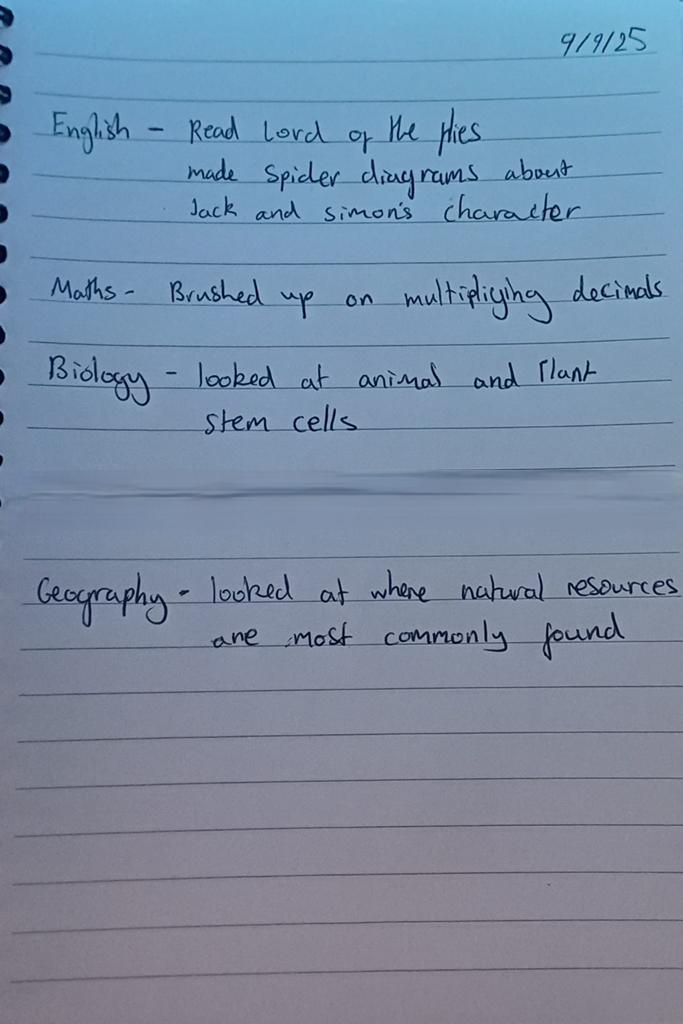 9/9/25
English - Read Lord of the flies
made Spider diagrams about
Jack and simon's character
Maths - Brushed up on multipliying decimals
Biology - looked at animal and Plant
stem cells
Geography - looked at where natural resources
are most commonly found